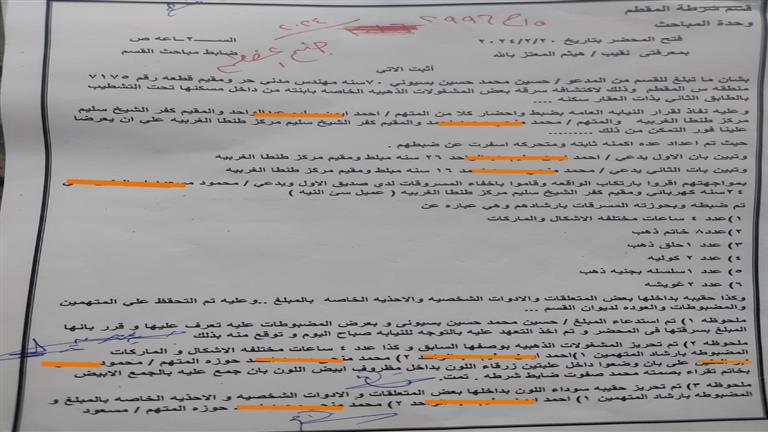 قسم شرطة المقطم
وحدة المباحث
٢٩٩٦ ح ١٥
٢٠٢٤
فتح المحضر بتاريخ ٢٠٢٤/٢/٢٠ الســـ٢ـاعه ص
بمعرفتى نقيب / هيثم المعتز بالله ضابط مباحث القسم
أثبت الاتي
بشان ما تبلغ للقسم من المدعو / حسين محمد حسين بسيونى ٧٠سنه مهندس مدني حر ومقيم قطعه رقم ٧١٧٥
منطقه س المقطم وذلك لاكتشافه سرقه بعض المشغولات الذهبيه الخاصه بابنته من داخل مسكنها تحت التشطيب
بالطابق الثاني بذات العقار سكنه ....
وعليه نفاذ لقرار النيابه العامه بضبط واحضار كلا من المتهم / احمد والمقيم كفر الشيخ سليم
مركز طنطا الغربيه والمتهم / محمد والمقيم كفر الشيخ سليم مركز طنطا الغربيه علي ان يعرضا
علينا فور التمكن من ذلك........
حيث تم اعداد عده اكمنه ثابته ومتحركه اسفرت عن ضبطهم .
وتبين بان الاول يدعي / احمد ٢٦ سنه مبلط ومقيم مركز طنطا الغربيه
وتبين بات الثاني يدعي / محمد ١٦ سنه مبلط ومقيم مركز طنطا الغربيه
بمواجهتهم اقروا بارتكاب الواقعه وقاموا باخفاء المسروقات لدي صديق الاول ويدعي / محمود
٢٤سنه كهربائي ومقيم كفر الشيخ سليم مركز طنطا الغربيه ( عميل سئ النيه )
تم ضبطه وبحوزته المسرقات بارشادهم وهي عباره عن
١) عدد ٤ ساعات مختلفه الاشكال والماركات
٢) عدد٨ خاتم ذهب
٣) عدد ١حلق ذهب
٤) عدد ٢ كوليه
٥) عدد ١سلسله بجنيه ذهب
٦) عدد ٢ غويشه
وكذا حقيبه بداخلها بعض المتعلقات والادوات الشخصيه والاحذيه الخاصه بالمبلغ ..وعليه تم التحفظ علي المتهمين
والمضبوطات والعوده لديوان القسم ...
ملحوظه ١) تم استدعاء المبلغ / حسين محمد حسين بسيونى و بعرض المضبوطات عليه تعرف عليها و قرر بانها
المبلغ بسرقتها فى المحضر و تم اخذ التعهد عليه بالتوجه للنيابه صباح اليوم و توقع منه بذلك
ملحوظه ٢) تم تحريز المشغولات الذهبيه بوصفها السابق و كذا عدد ٤ ساعات مختلفه الاشكال و الماركات
المضبوطه بارشاد المتهمين ١)احمد ٢) محمد حوزه المتهم / محمود
علي بان وضعوا داخل علبتين زرقاء اللون بداخل مظروف ابيض اللون بان جمع عليه بالجمع الابيض
بخاتم تقراء بصمته محمد صفوت ضابط شرطه . تمت.
ملحوظه ٣) تم تحريز حقيبه سوداء اللون بداخلها بعض المتعلقات و الادوات الشخصيه و الاحذيه الخاصه بالمبلغ و
المضبوطه بارشاد المتهمين ١) احمد ٢) محمد حوزه المتهم / مسعود